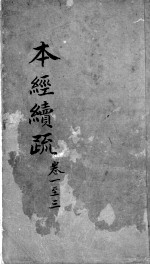 本經續疏
卷一至三